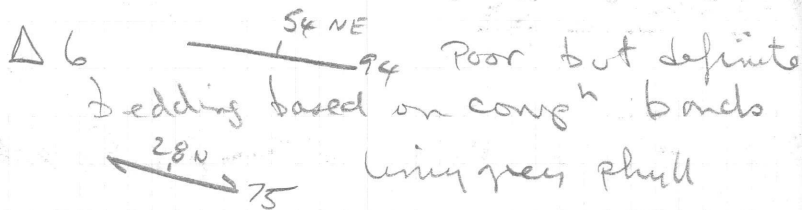 Δ 6 54 NE 94 Poor but definite
bedding based on compⁿ bands
28 N 75 limy grey phyll